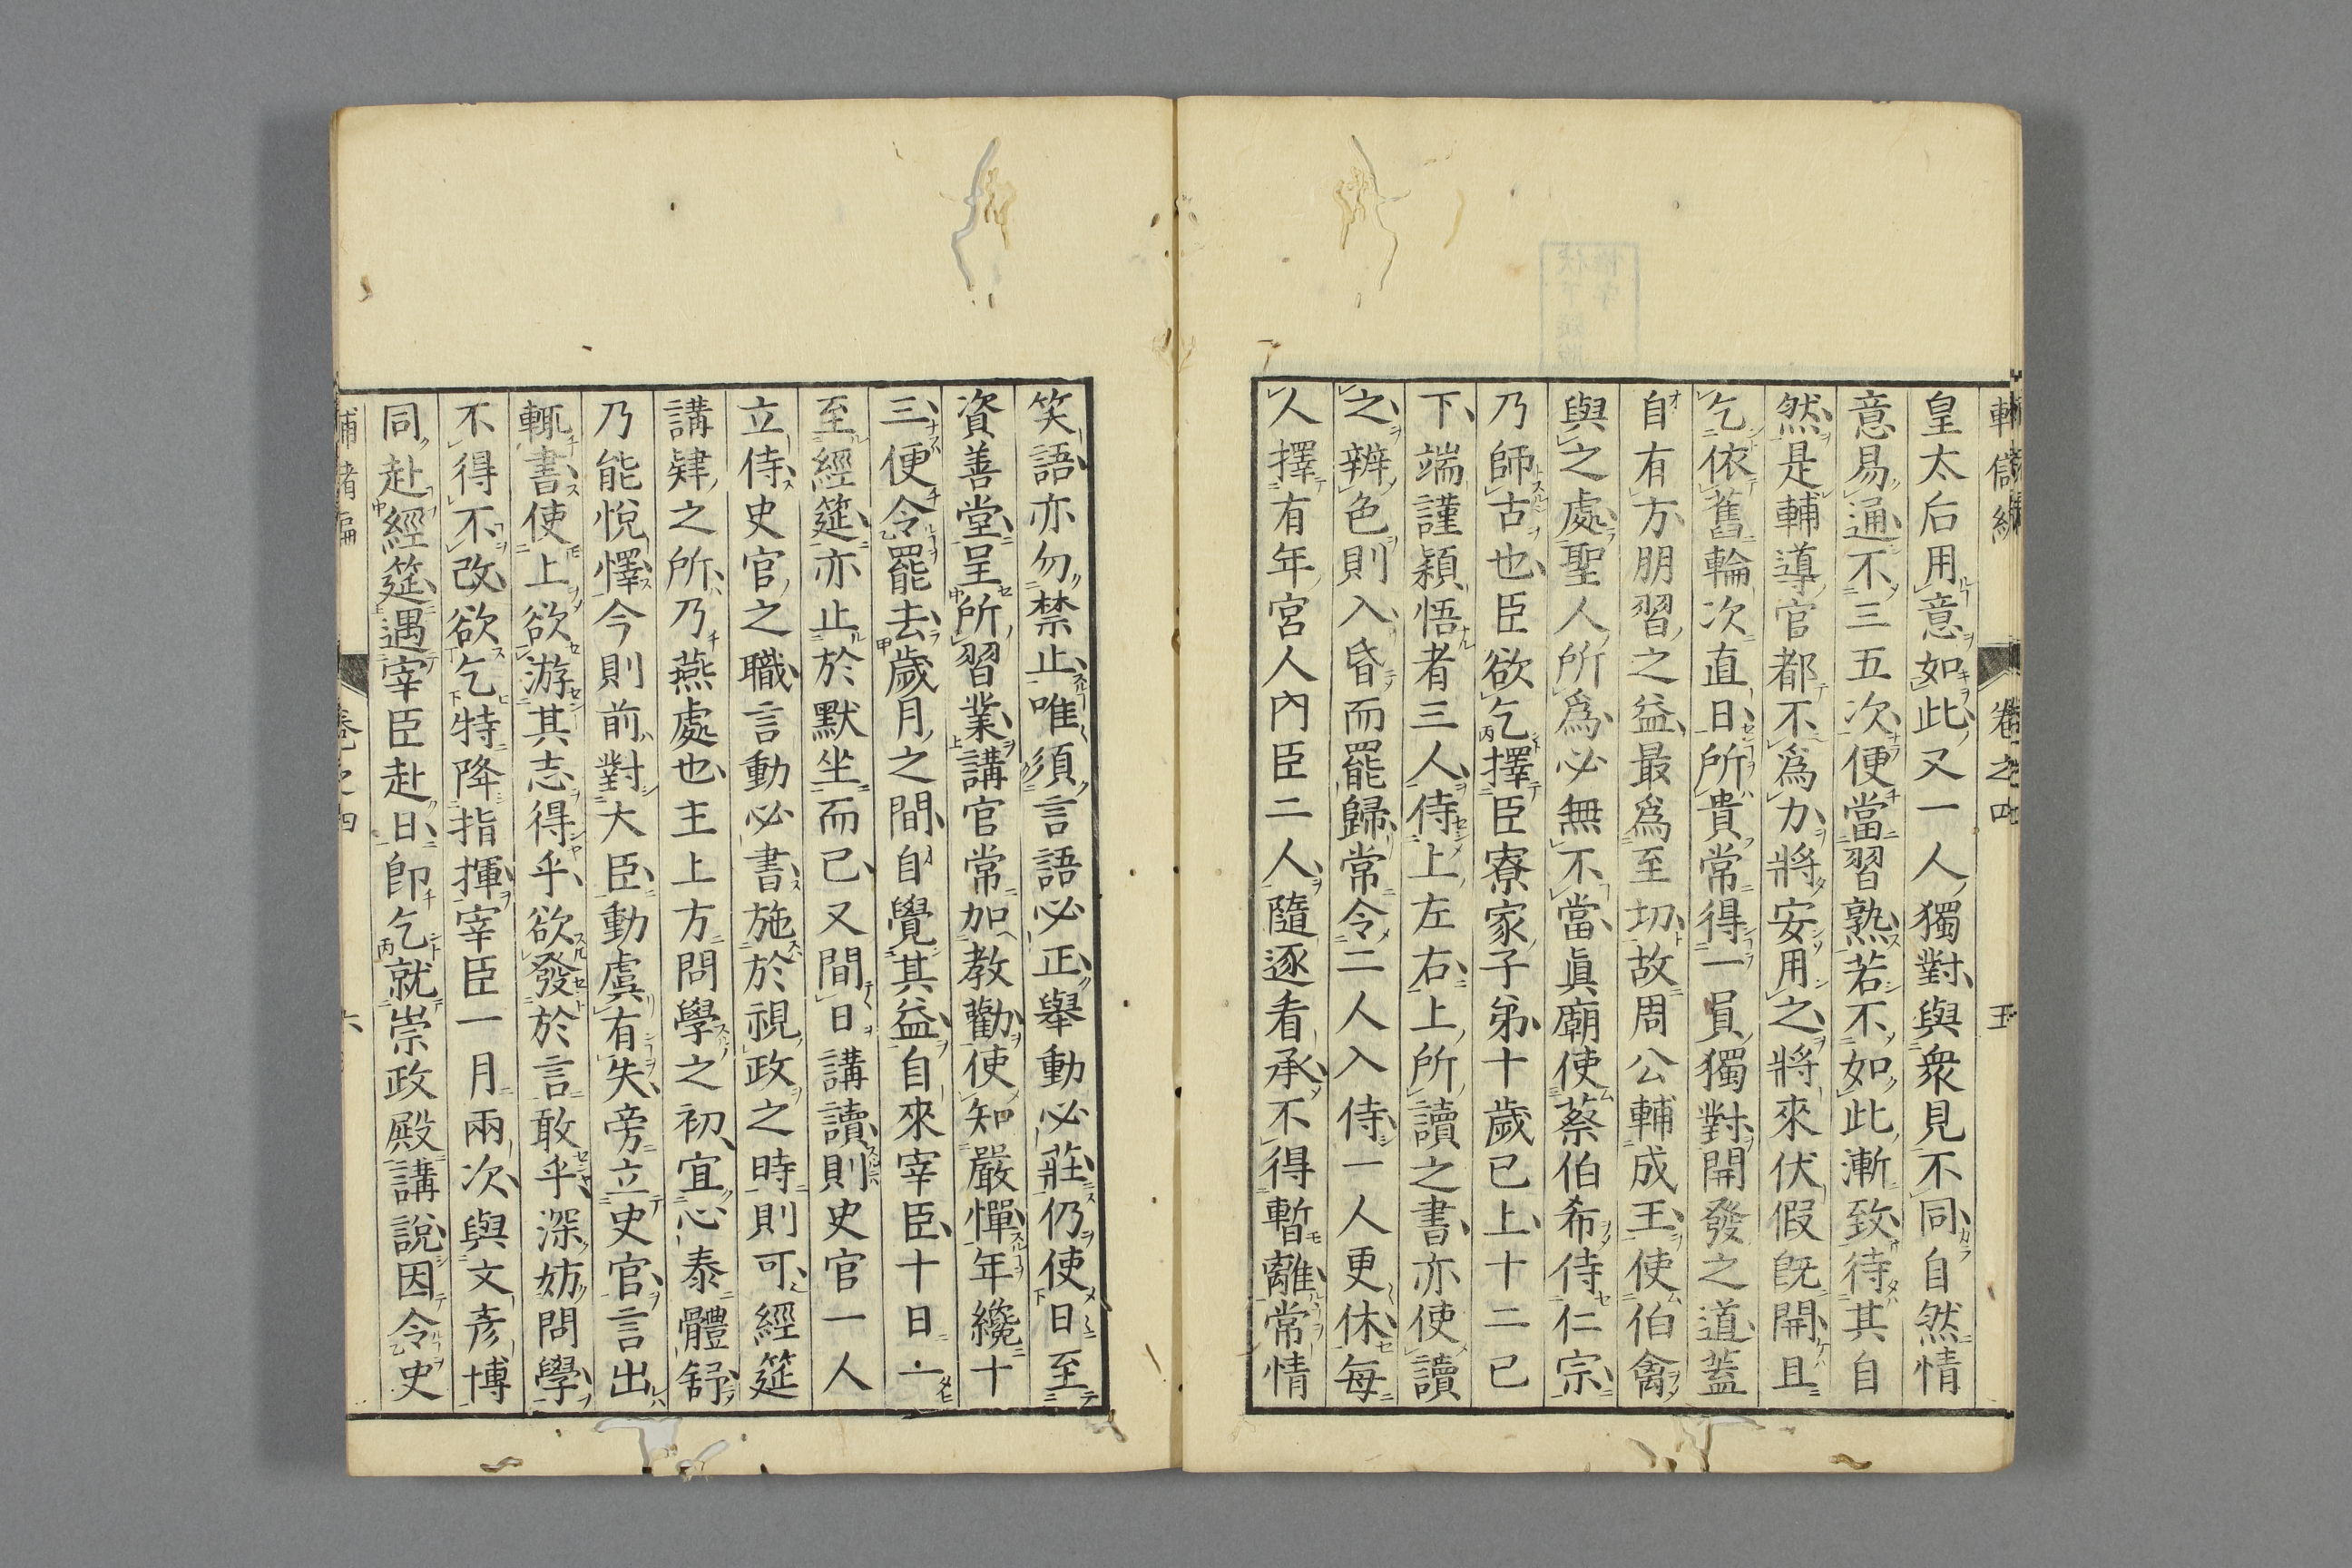 皇太后用意如此又一人獨對與衆見不同自然情
意易通不三五次便當習熟若不如此漸致待其自
然是輔導官都不爲力將安用之將來伏假既開且
乞依舊輪次直日所貴常得一員獨對開發之道蓋
自有方朋習之益最爲至切故周公輔成王使伯禽
與之處聖人所爲必無不當眞廟使蔡伯希侍仁宗
乃師古也臣欲乞擇臣寮家子弟十歲已上十二已
下端謹穎悟者三人侍上左右上所讀之書亦使讀
之辨色則入昏而罷歸常令二人入侍一人更休每
人擇有年宮人內臣二人隨逐看承不得暫離常情
笑語亦勿禁止唯須言語必正舉動必莊仍使日至
資善堂呈所習業講官常加教勸使知嚴憚年纔十
三便令罷去歲月之間自覺其益自來宰臣十日一
至經筵亦止於默坐而已又間日講讀則史官一人
立侍史官之職言動必書施於視政之時則可經筵
講肄之所乃燕處也主上方問學之初宜心泰體舒
乃能悅懌今則前對大臣動虞有失旁立史官言出
輒書使上欲游其志得乎欲發於言敢乎深妨問學
不得不改欲乞特降指揮宰臣一月兩次與文彥博
同赴經筵遇宰臣赴日卽乞就崇政殿講說因令史
卷之四